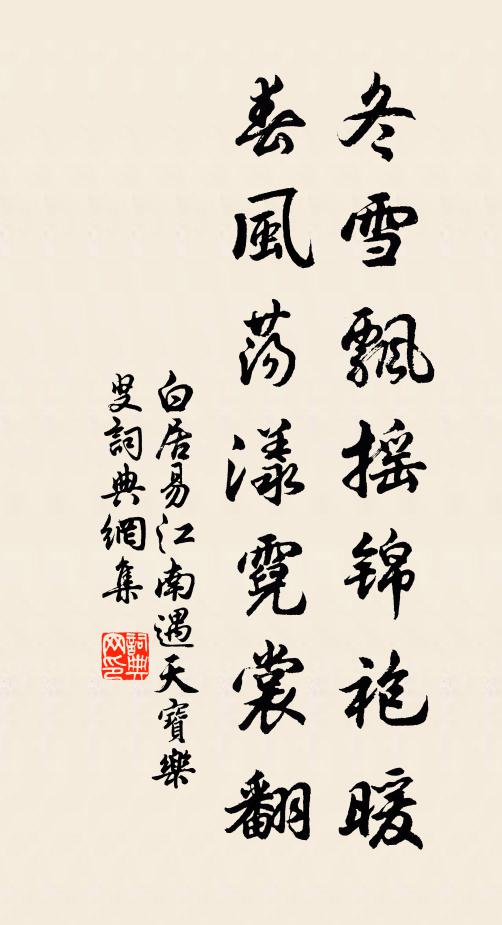 冬雪飄搖锦袍暖
春風荡漾霓裳翻
白居易江南遇天寶樂
叟詞典網集
詞典網印